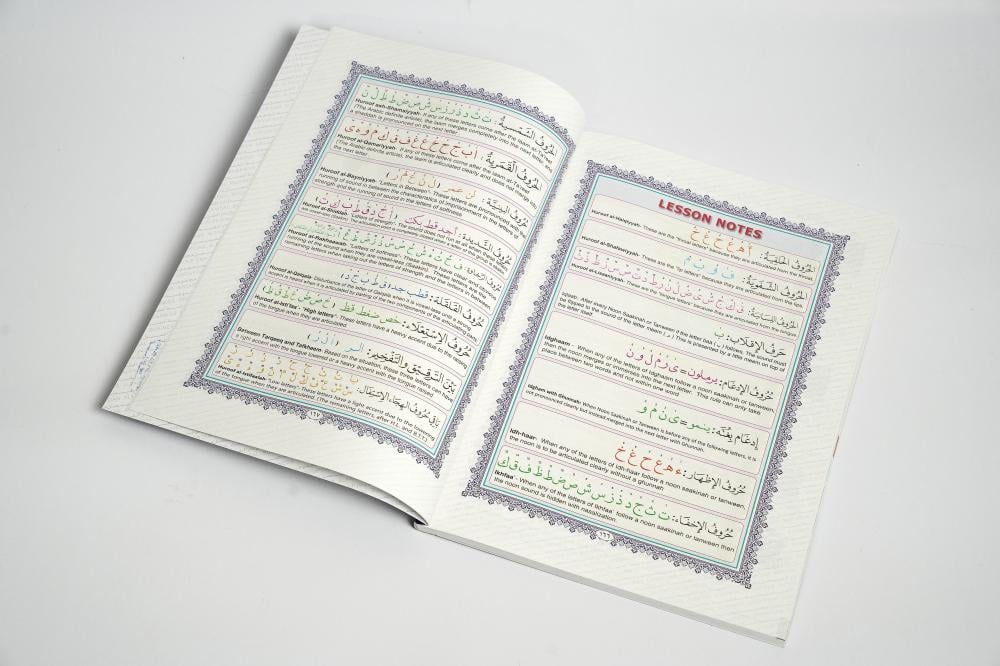 LESSON NOTES
الحُرُوفُ الحَلْقِيَّةُ: أ هـ ع ح غ خ
Huroof al-Halqiyyah- These are the "throat letters" because they are articulated from the throat
الحُرُوفُ الشَّفَوِيَّةُ: ف و ب م
Huroof al-Shafawiyyah- These are the "lip letters" because they are articulated from the lips.
Huroof al-Lisaaniyyah- These are the "tongue letters" because they are articulated from the tongue
حَرْفُ الإِقْلَابِ: ب
Iqlaab- After every Noon Saakinah or Tanween if the letter baa (ب) follows. The sound must
be flipped to the sound of the letter meem (م) This is presented by a little meem on top of
the letter itself
حُرُوفُ الإِدْغَامِ: يرملون = ي ر م ل و ن
Idghaam - When any of the letters of Idghaam follow a noon saakinah or tanween,
then the noon merges or immerses into the next letter. This rule can only take
place between two words and not within one word
إِدْغَام بِغُنَّة: ينمو = ي ن م و
Idgham with Ghunnah: When Noon Saakinah or Tanween is before any of the following letters, it is
not pronounced clearly but instead merged into the next letter with Ghunnah.
حُرُوفُ الإِظْهَارِ: ء هـ ع ح غ خ
Idh-haar- When any of the letters of Idh-haar follow a noon saakinah or tanween,
the noon is to be articulated clearly without a ghunnah
حُرُوفُ الإِخْفَاءِ: ت ث ج د ذ ز س ش ص ض ط ظ ف ق ك
Ikhfaa'- When any of the letters of Ikhfaa' follow a noon saakinah or tanween then
the noon sound is hidden with nasalization.
١٦٦
الحُرُوفُ الشَّمْسِيَّةُ: ت ث د ذ ر ز س ش ص ض ط ظ ل ن
Huroof ash-Shamsiyyah- If any of these letters come after the laam at-Ta'reef
(The Arabic definite article), the laam merges completely into the next letter, and
a shaddah is pronounced on the next letter
الحُرُوفُ القَمَرِيَّةُ: أ ب ج ح خ ع غ ف ق ك م و ه ي
Huroof al-Qamariyyah- If any of these letters come after the laam at-Ta'reef
(The Arabic definite article), the laam is articulated clearly and does not merge into
the next letter
حُرُوفُ البَيْنِيَّة: لن عمر (ل ن ع م ر)
Huroof al-Bayniyyah- "Letters in Between"- These letters are pronounced with the
running of sound in between the characteristics of imprisonment in the letters of
strength and the running of sound in the letters of softness
حُرُوفُ الشَّدِيدَة: أجد قط بكت (أ ج د ق ط ب ك ت)
Huroof al-Shiddah- "Letters of strength"- The sound does not run at all when these letters
حُرُوفُ القَلْقَلَة: قطب جد (ق ط ب ج د)
حُرُوفُ الإِسْتِعْلَاءِ: خص ضغط قظ (خ ص ض غ ط ق ظ)
Huroof al-Isti'laa - "High letters"- These letters have a heavy accent due to the raising
of the tongue when they are articulated
بَيْنَ التَّرْقِيقِ وَالتَّفْخِيمِ: الر (ا ل ر)
Between Tarqeeq and Tafkheem- Based on the situation, these letters will have
a light accent with the tongue lowered or a heavy accent with the tongue raised
Huroof al-Istifaalah- "Low letters"- These letters have a light accent due to the lowering
of the tongue when they are articulated. (The remaining letters, after H.L. and B.T.T)
١٦٧